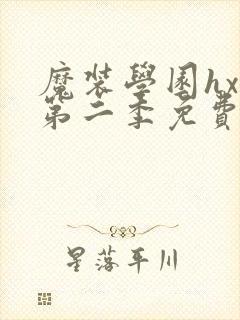 魔裝學園hx
第二季免費
星落平川